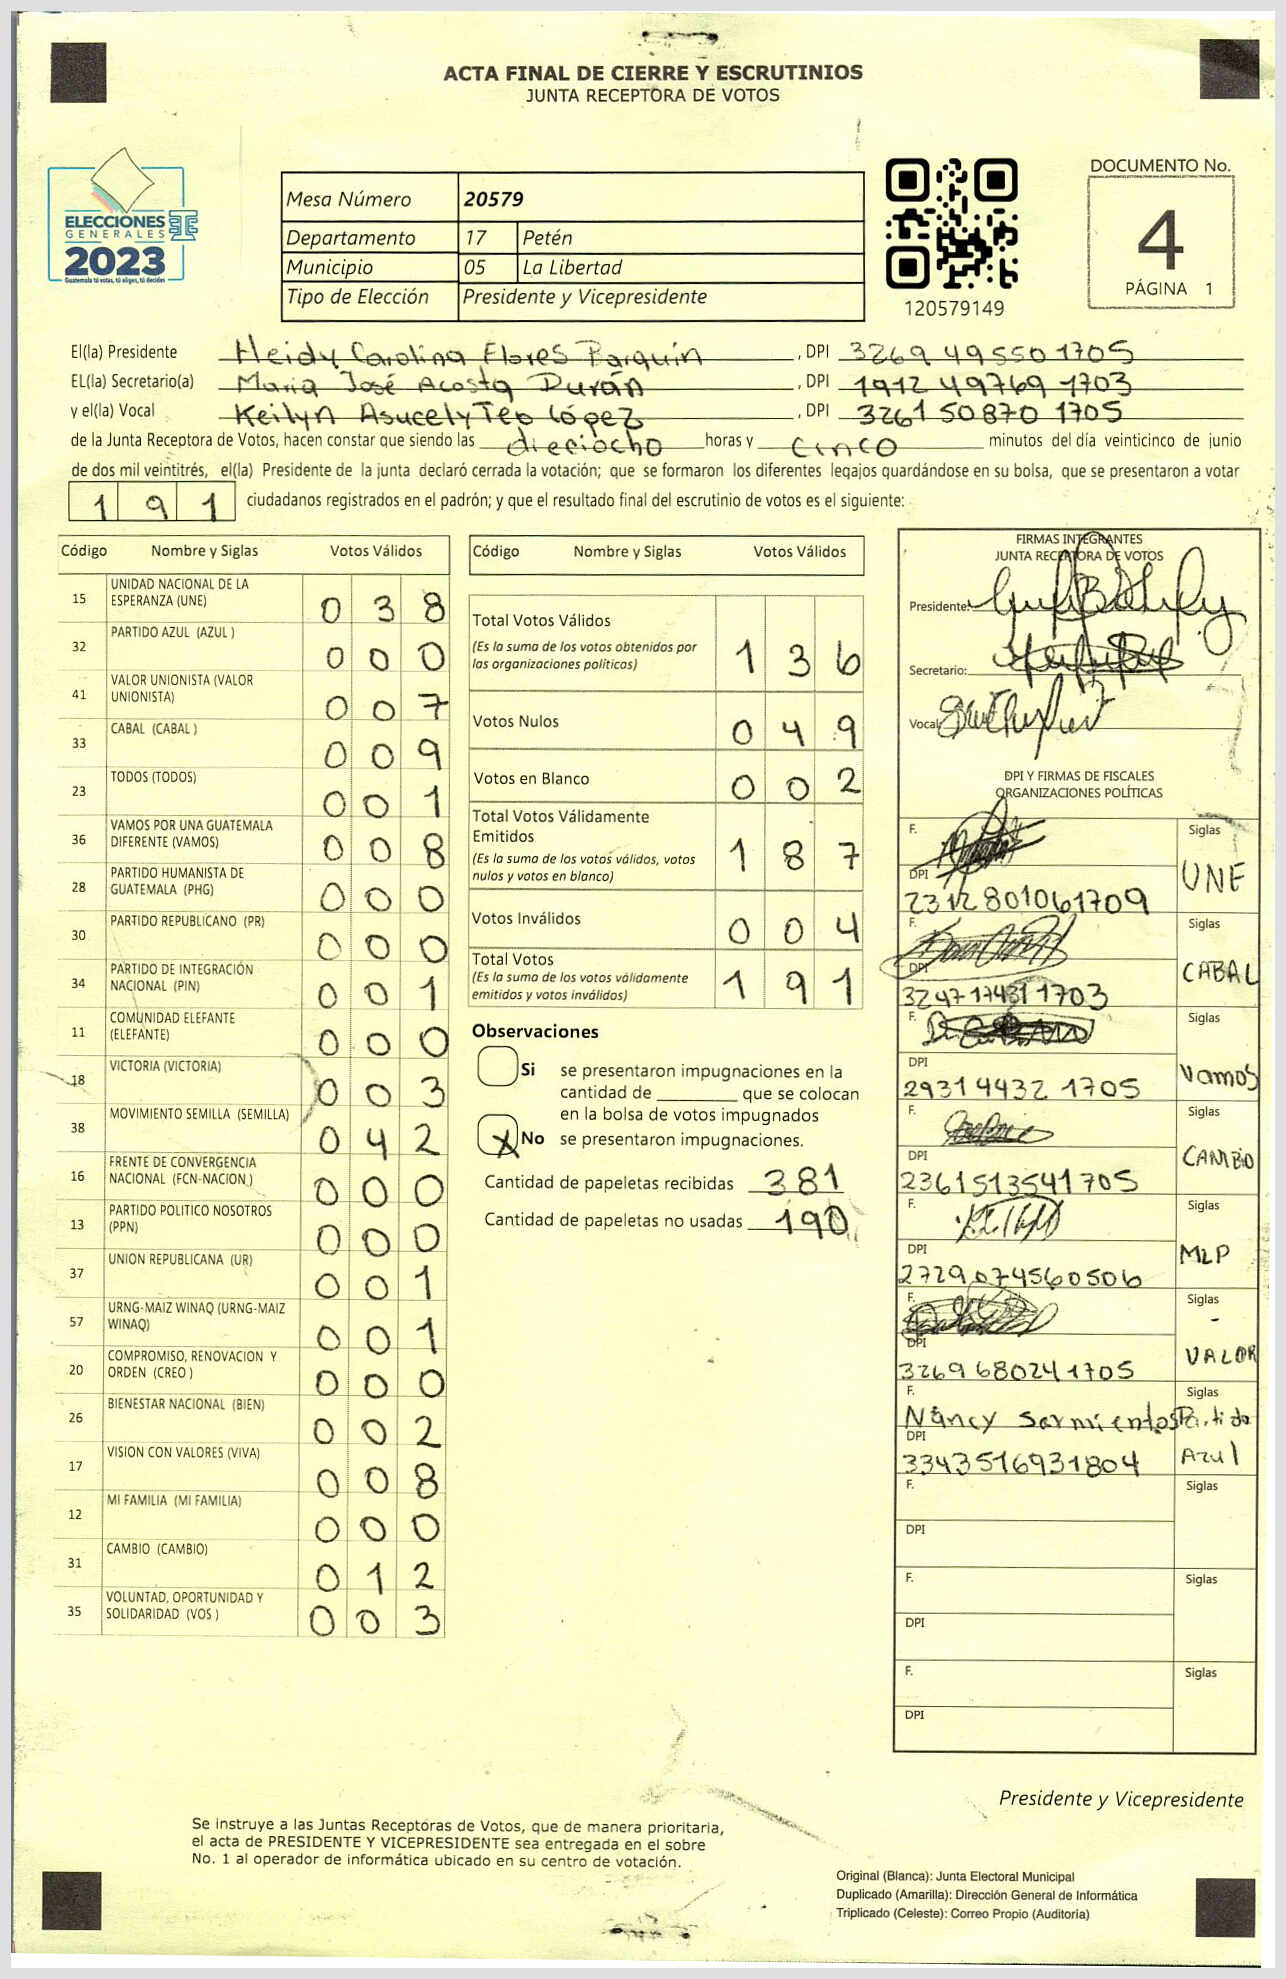 ACTA FINAL DE CIERRE Y ESCRUTINIOS
JUNTA RECEPTORA DE VOTOS
ELECCIONES
GENERALES
2023
Guatemala tú votas, tú eliges, tú decides
Mesa Número 20579
Departamento 17 Petén
Municipio 05 La Libertad
Tipo de Elección Presidente y Vicepresidente
120579149
DOCUMENTO No.
4
PÁGINA 1
El(la) Presidente Heidy Carolina Flores Barquín, DPI 3269 49550 1705
EL(la) Secretario(a) Maria José Acosta Durán, DPI 1912 49769 1703
y el(la) Vocal Keilyn Asucely Teo López, DPI 3261 50870 1705
de la Junta Receptora de Votos, hacen constar que siendo las dieciocho horas y cinco minutos del día veinticinco de junio
de dos mil veintitrés, el(la) Presidente de la junta declaró cerrada la votación; que se formaron los diferentes legajos guardándose en su bolsa, que se presentaron a votar
191 ciudadanos registrados en el padrón; y que el resultado final del escrutinio de votos es el siguiente:
Código Nombre y Siglas Votos Válidos
15 UNIDAD NACIONAL DE LA ESPERANZA (UNE) 038
32 PARTIDO AZUL (AZUL ) 000
41 VALOR UNIONISTA (VALOR UNIONISTA) 007
33 CABAL (CABAL ) 009
23 TODOS (TODOS) 001
36 VAMOS POR UNA GUATEMALA DIFERENTE (VAMOS) 008
28 PARTIDO HUMANISTA DE GUATEMALA (PHG) 000
30 PARTIDO REPUBLICANO (PR) 000
34 PARTIDO DE INTEGRACIÓN NACIONAL (PIN) 001
11 COMUNIDAD ELEFANTE (ELEFANTE) 000
18 VICTORIA (VICTORIA) 003
38 MOVIMIENTO SEMILLA (SEMILLA) 042
16 FRENTE DE CONVERGENCIA NACIONAL (FCN-NACION ) 000
13 PARTIDO POLITICO NOSOTROS (PPN) 000
37 UNION REPUBLICANA (UR) 001
57 URNG-MAIZ WINAQ (URNG-MAIZ WINAQ) 001
20 COMPROMISO, RENOVACION Y ORDEN (CREO ) 000
26 BIENESTAR NACIONAL (BIEN) 002
17 VISION CON VALORES (VIVA) 008
12 MI FAMILIA (MI FAMILIA) 000
31 CAMBIO (CAMBIO) 012
35 VOLUNTAD, OPORTUNIDAD Y SOLIDARIDAD (VOS ) 003
Código Nombre y Siglas Votos Válidos
Total Votos Válidos 136
(Es la suma de los votos obtenidos por
las organizaciones políticas)
Votos Nulos 049
Votos en Blanco 002
Total Votos Válidamente
Emitidos 187
(Es la suma de los votos válidos, votos
nulos y votos en blanco)
Votos Inválidos 004
Total Votos 191
(Es la suma de los votos válidamente
emitidos y votos inválidos)
Observaciones
Si se presentaron impugnaciones en la
cantidad de ________ que se colocan
en la bolsa de votos impugnados
X No se presentaron impugnaciones.
Cantidad de papeletas recibidas 381
Cantidad de papeletas no usadas 190
FIRMAS INTEGRANTES
JUNTA RECEPTORA DE VOTOS
Presidente:
Secretario:
Vocal:
DPI Y FIRMAS DE FISCALES
ORGANIZACIONES POLÍTICAS
F. Siglas
DPI UNE
2312801061709
F. Siglas
DPI CABAL
3247174311703
F. Siglas
DPI Vamos
29314432 1705
F. Siglas
DPI CAMBIO
2361513541705
F. Siglas
DPI MLP
2729074560506
F. Siglas
DPI VALOR
3269680241705
F. Siglas
Nancy Sarmientos Partido
DPI Azul
3343516931804
F. Siglas
DPI
F. Siglas
DPI
F. Siglas
DPI
Presidente y Vicepresidente
Se instruye a las Juntas Receptoras de Votos, que de manera prioritaria,
el acta de PRESIDENTE Y VICEPRESIDENTE sea entregada en el sobre
No. 1 al operador de informática ubicado en su centro de votación.
Original (Blanca): Junta Electoral Municipal
Duplicado (Amarilla): Dirección General de Informática
Triplicado (Celeste): Correo Propio (Auditoría)